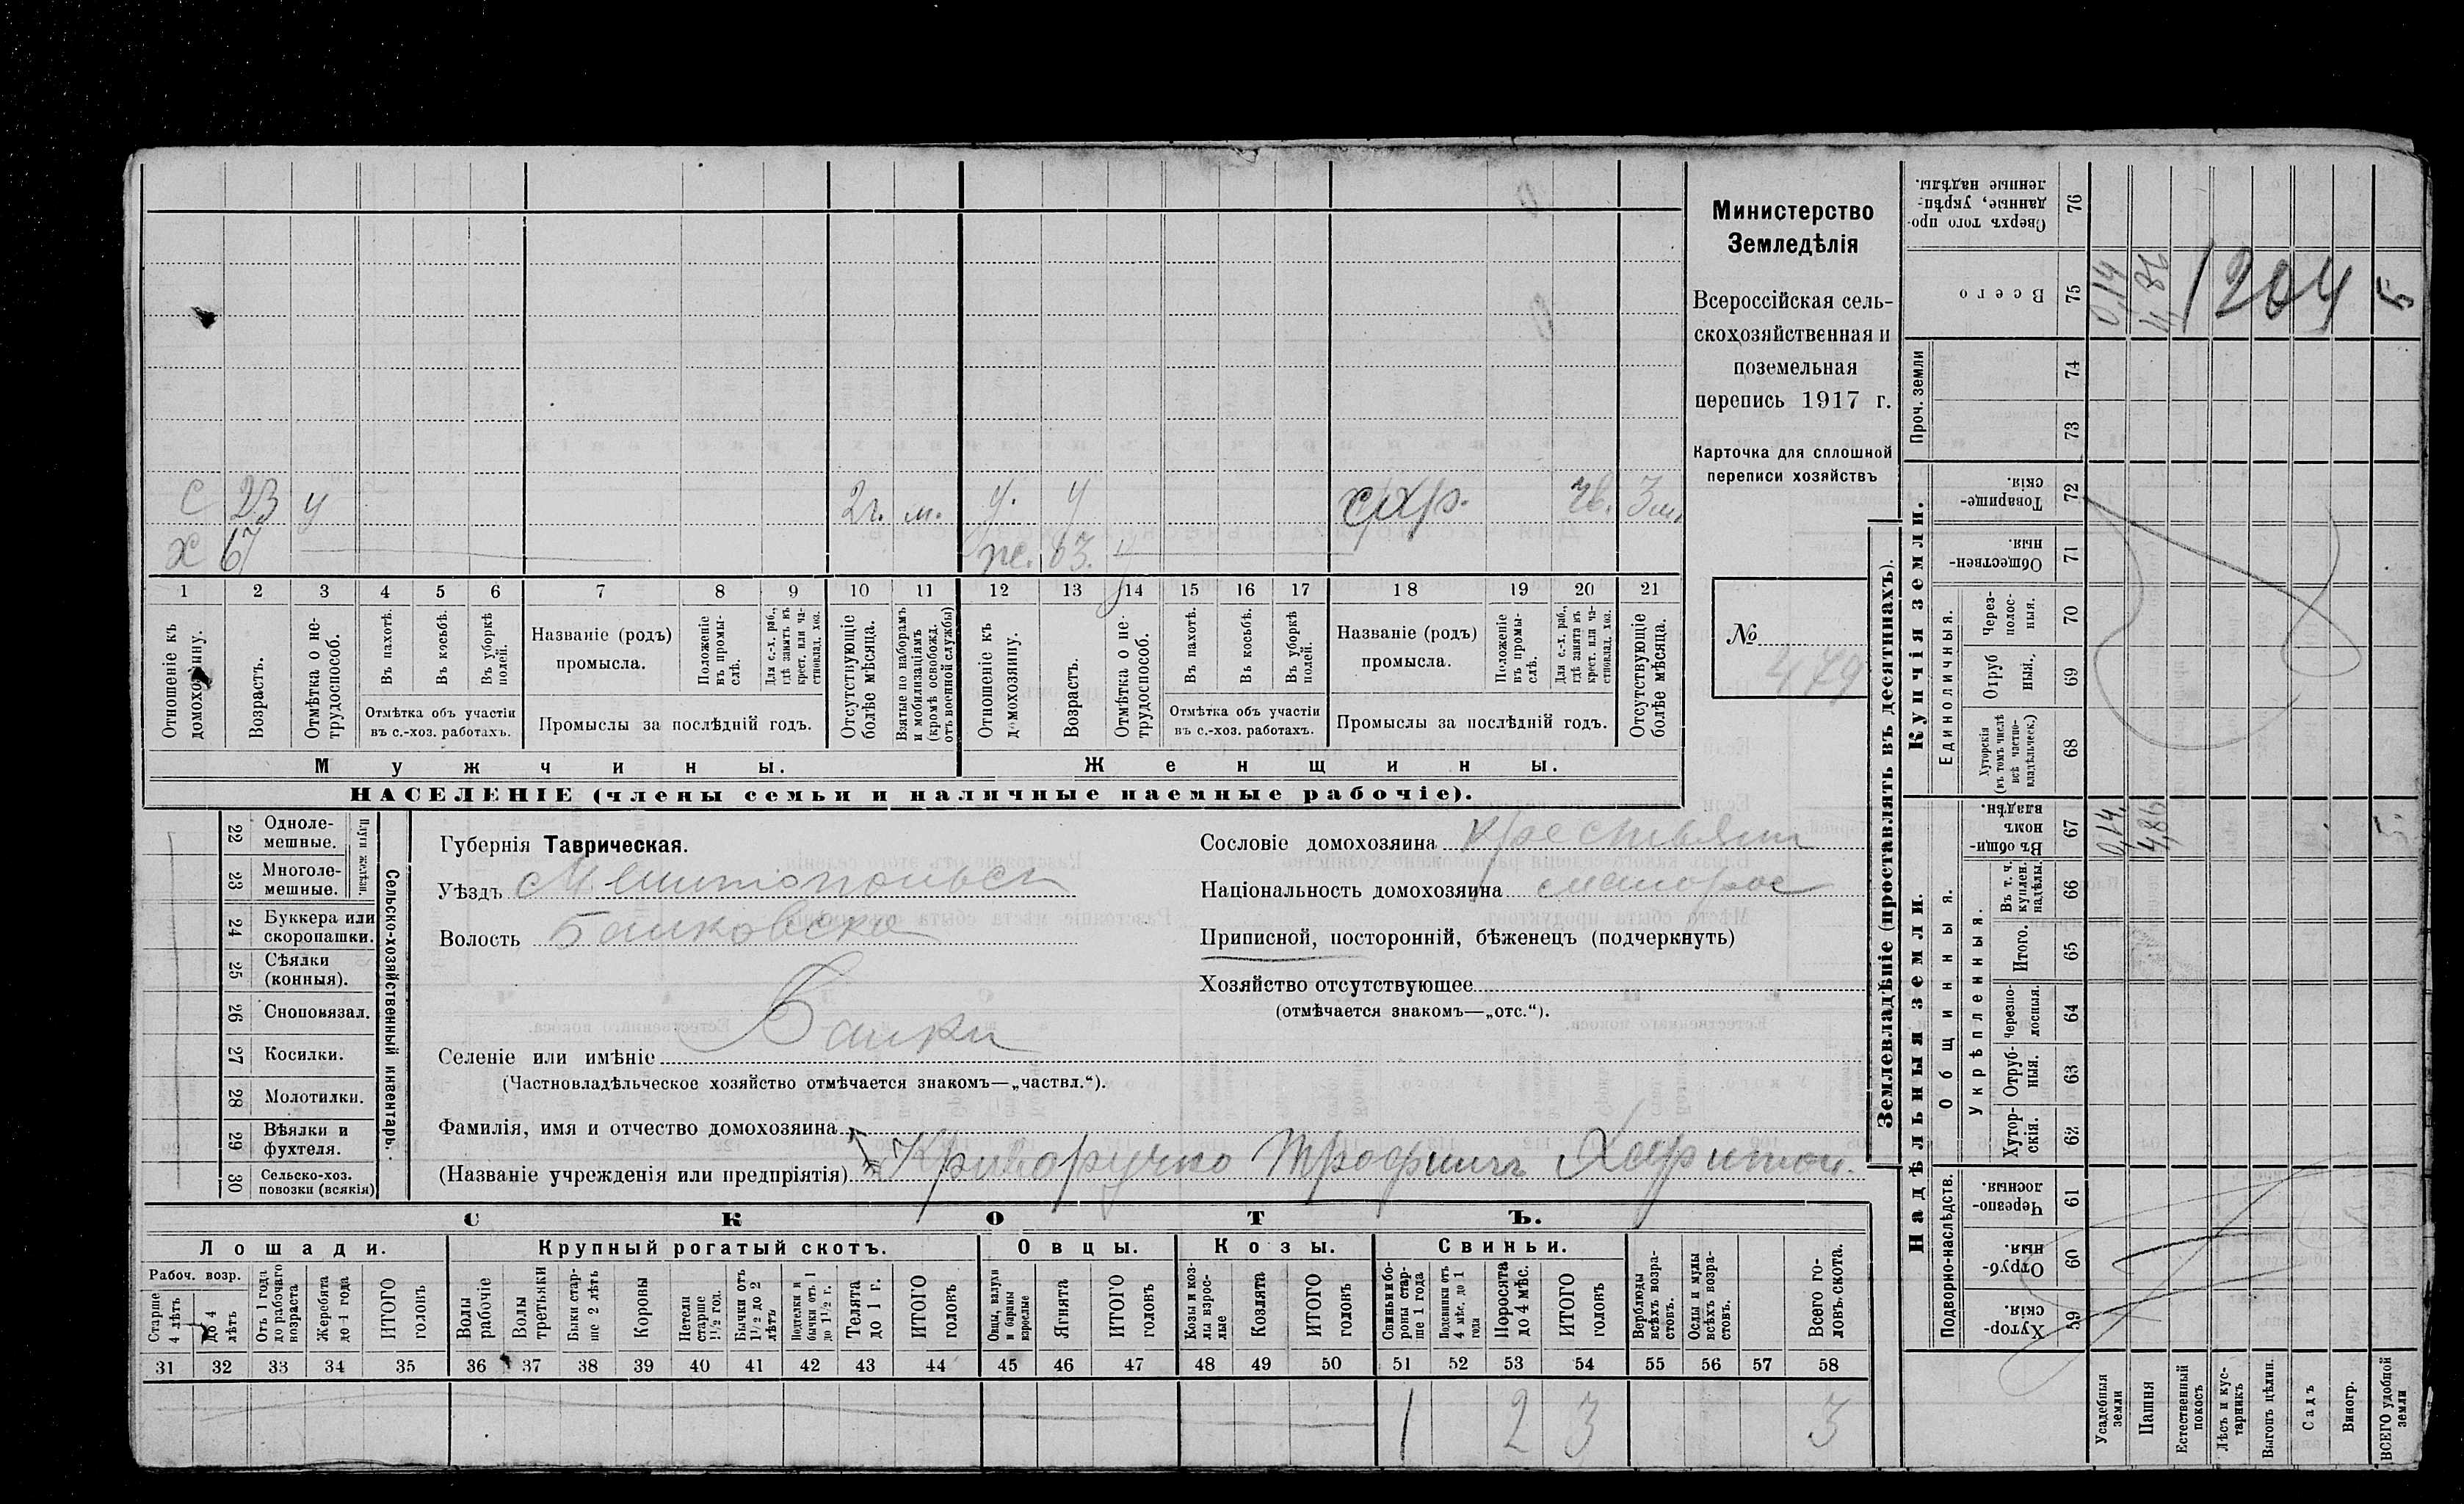 С 23 у 2г. м. у. у с/хр. 2в. 3м.
Х 67 же. 63. у
1 2 3 4 5 6 7 8 9 10 11 12 13 14 15 16 17 18 19 20 21
Отношеніе къ домохозяину.
Возрастъ.
Отмѣтка о не-трудоспособ.
Въ пахотѣ.
Въ косьбѣ.
Въ уборкѣ полей.
Отмѣтка объ участіи въ с.-хоз. работахъ.
Названіе (родъ) промысла.
Положеніе въ промы-слѣ.
Для с.-х. раб., гдѣ занятъ въ крест. или ча-стновлад. хоз.
Промыслы за послѣдній годъ.
Отсутствующіе болѣе мѣсяца.
Взятые по наборамъ и мобилизаціямъ (кромѣ освобожд. отъ военной службы)
Отношеніе къ домохозяину.
Возрастъ.
Отмѣтка о не-трудоспособ.
Въ пахотѣ.
Въ косьбѣ.
Въ уборкѣ полей.
Отмѣтка объ участіи въ с.-хоз. работахъ.
Названіе (родъ) промысла.
Положеніе въ промы-слѣ.
Для с.-х. раб., гдѣ занята въ крест. или ча-стновлад. хоз.
Промыслы за послѣдній годъ.
Отсутствующіе болѣе мѣсяца.
Мужчины.
Женщины.
НАСЕЛЕНІЕ (члены семьи и наличные наемные рабочіе).
Министерство
Земледѣлія
Всероссійская сель-
скохозяйственная и
поземельная
перепись 1917 г.
Карточка для сплошной
переписи хозяйствъ
№ 479
22 Одноле-мешные.
23 Многоле-мешные.
Плуги желѣзн.
24 Буккера или скоропашки.
25 Сѣялки (конныя).
26 Сноповязал.
27 Косилки.
28 Молотилки.
29 Вѣялки и фухтеля.
30 Сельско-хоз. повозки (всякія)
Сельско-хозяйственный инвентарь.
Губернія Таврическая.
Уѣздъ Мелитопольск
Волость Балковска
Селеніе или имѣніе Балки
(Частновладѣльческое хозяйство отмѣчается знакомъ—„частвл.“).
Фамилія, имя и отчество домохозяина
(Названіе учрежденія или предпріятія) Криворучко Трофимъ Харитон.
Сословіе домохозяина крестьян
Національность домохозяина малорос
Приписной, посторонній, бѣженецъ (подчеркнуть)
Хозяйство отсутствующее
(отмѣчается знакомъ—„отс.“).
СКОТЪ.
Лошади.
Крупный рогатый скотъ.
Овцы.
Козы.
Свиньи.
Рабоч. возр.
Старше 4 лѣтъ
До 4 лѣтъ
Отъ 1 года до рабочаго возраста
Жеребята до 1 года
ИТОГО головъ
Волы рабочіе
Волы третьяки
Быки стар-ше 2 лѣтъ
Коровы
Нетели старше 1½ год.
Бычки отъ 1½ до 2 лѣтъ
Подтелки и бычки отъ 1 до 1½ г.
Телята до 1 г.
ИТОГО головъ
Овцы, валухи и бараны взрослые
Ягнята
ИТОГО головъ
Козы и коз-лы взрос-лые
Козлята
ИТОГО головъ
Свиньи и бо-ровы стар-ше 1 года
Подсвинки отъ 4 мѣс. до 1 года
Поросята до 4 мѣс.
ИТОГО головъ
Верблюды всѣхъ возра-стовъ.
Ослы и мулы всѣхъ возра-стовъ.
Всего го-ловъ скота.
31 32 33 34 35 36 37 38 39 40 41 42 43 44 45 46 47 48 49 50 51 52 53 54 55 56 57 58
1 2 3 3
Землевладѣніе (проставлять въ десятинахъ).
Купчія земли.
Надѣльныя земли.
Сверхъ того про-данные, укрѣп-ленные надѣлы. 76
Всего 75 0,14 4,86 1204 5
Проч. земли
74
73
Товарище-скія. 72
Обществен-ныя. 71
Единоличныя.
Через-полос-ныя. 70
Отруб ныя. 69
Хуторскія (въ томъ числѣ всѣ частно-владѣльческ.) 68
Общинныя.
Въ общи-номъ владѣн. 67 0,14. 4,86 5.
Укрѣпленныя.
Въ т. ч. куплен. надѣлы. 66
Итого. 65
Черезпо-лосныя. 64
Отруб-ныя. 63
Хутор-скія. 62
Подворно-наслѣдств.
Черезпо-лосныя. 61
Отруб-ныя. 60
Хутор-скія. 59
Усадебныя земли
Пашня
Естественный покосъ
Лѣсъ и кус-тарникъ
Выгонъ цѣлин.
Садъ
Виногр.
ВСЕГО удобной земли